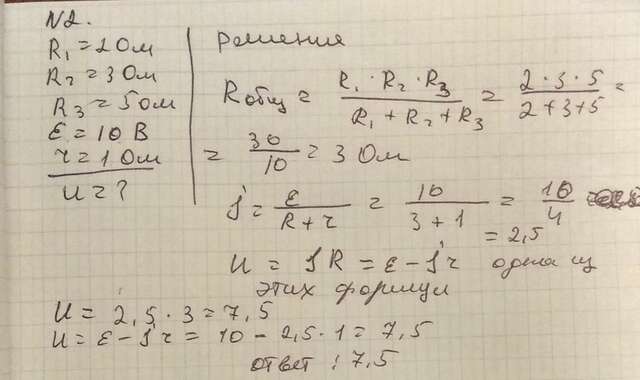 N2.
R₁ = 2 Ом
R₂ = 3 Ом
R₃ = 5 Ом
ε = 10 В
r = 1 Ом
u = ?
Решения
Rобщ = R₁ · R₂ · R₃ / R₁ + R₂ + R₃ = 2 · 3 · 5 / 2 + 3 + 5 =
= 30 / 10 = 3 Ом
J = ε / R + r = 10 / 3 + 1 = 10 / 4
= 2,5
u = JR = ε - Jr одна из
этих формул
u = 2,5 · 3 = 7,5
u = ε - Jr = 10 - 2,5 · 1 = 7,5
ответ : 7,5